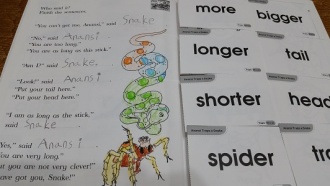 Who said it?
Finish the sentences.
"You can't get me, Anansi," said Snake
"No," said Anansi.
"You are too long."
"You are as long as this stick."
"Am I?" said Snake.
"Look!" said Anansi.
"Put your tail here."
"Put your head here."
"I am as long as the stick."
said Snake
"Yes," said Anansi.
"You are very long."
"But you are not very clever!"
"I have got you, Snake!"
more
bigger
longer
tail
shorter
head
spider